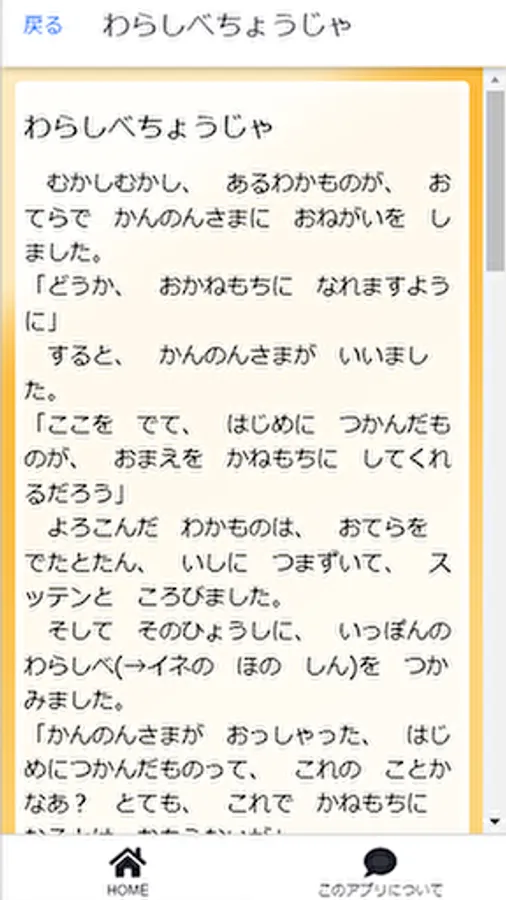 戻る わらしべちょうじゃ
わらしべちょうじゃ
　むかしむかし、　あるわかものが、　お
てらで　かんのんさまに　おねがいを　し
ました。
「どうか、　おかねもちに　なれますよう
に」
　すると、　かんのんさまが　いいまし
た。
「ここを　でて、　はじめに　つかんだも
のが、　おまえを　かねもちに　してくれ
るだろう」
　よろこんだ　わかものは、　おてらを
でたとたん、　いしに　つまずいて、　ス
ッテンと　ころびました。
　そして　そのひょうしに、　いっぽんの
わらしべ(→イネの　ほの　しん)を　つか
みました。
「かんのんさまが　おっしゃった、　はじ
めにつかんだものって、　これの　ことか
なあ？　とても、　これで　かねもちに
HOME このアプリについて